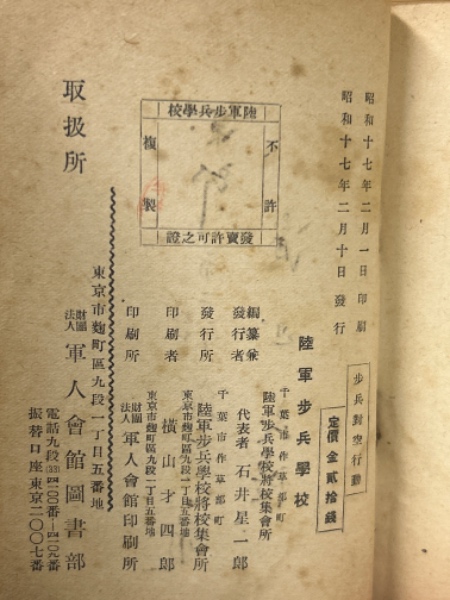 昭和十七年二月一日印刷
昭和十七年二月十日發行
步兵對空行動
定價金貳拾錢
陸軍步兵學校
千葉市作草部町
編纂兼
發行者
陸軍步兵學校將校集會所
代表者 石井星一郎
千葉市作草部町
發行所
陸軍步兵學校將校集會所
東京市麹町區九段一丁目五番地
印刷者
橫山才四郎
東京市麹町區九段一丁目五番地
印刷所
財團
法人
軍人會館印刷所
陸軍步兵學校
不許
複製
發賣許可之證
取扱所
東京市麹町區九段一丁目五番地
財團
法人
軍人會館圖書部
電話九段(33)四一〇〇番—四一〇九番
振替口座東京二〇〇七番